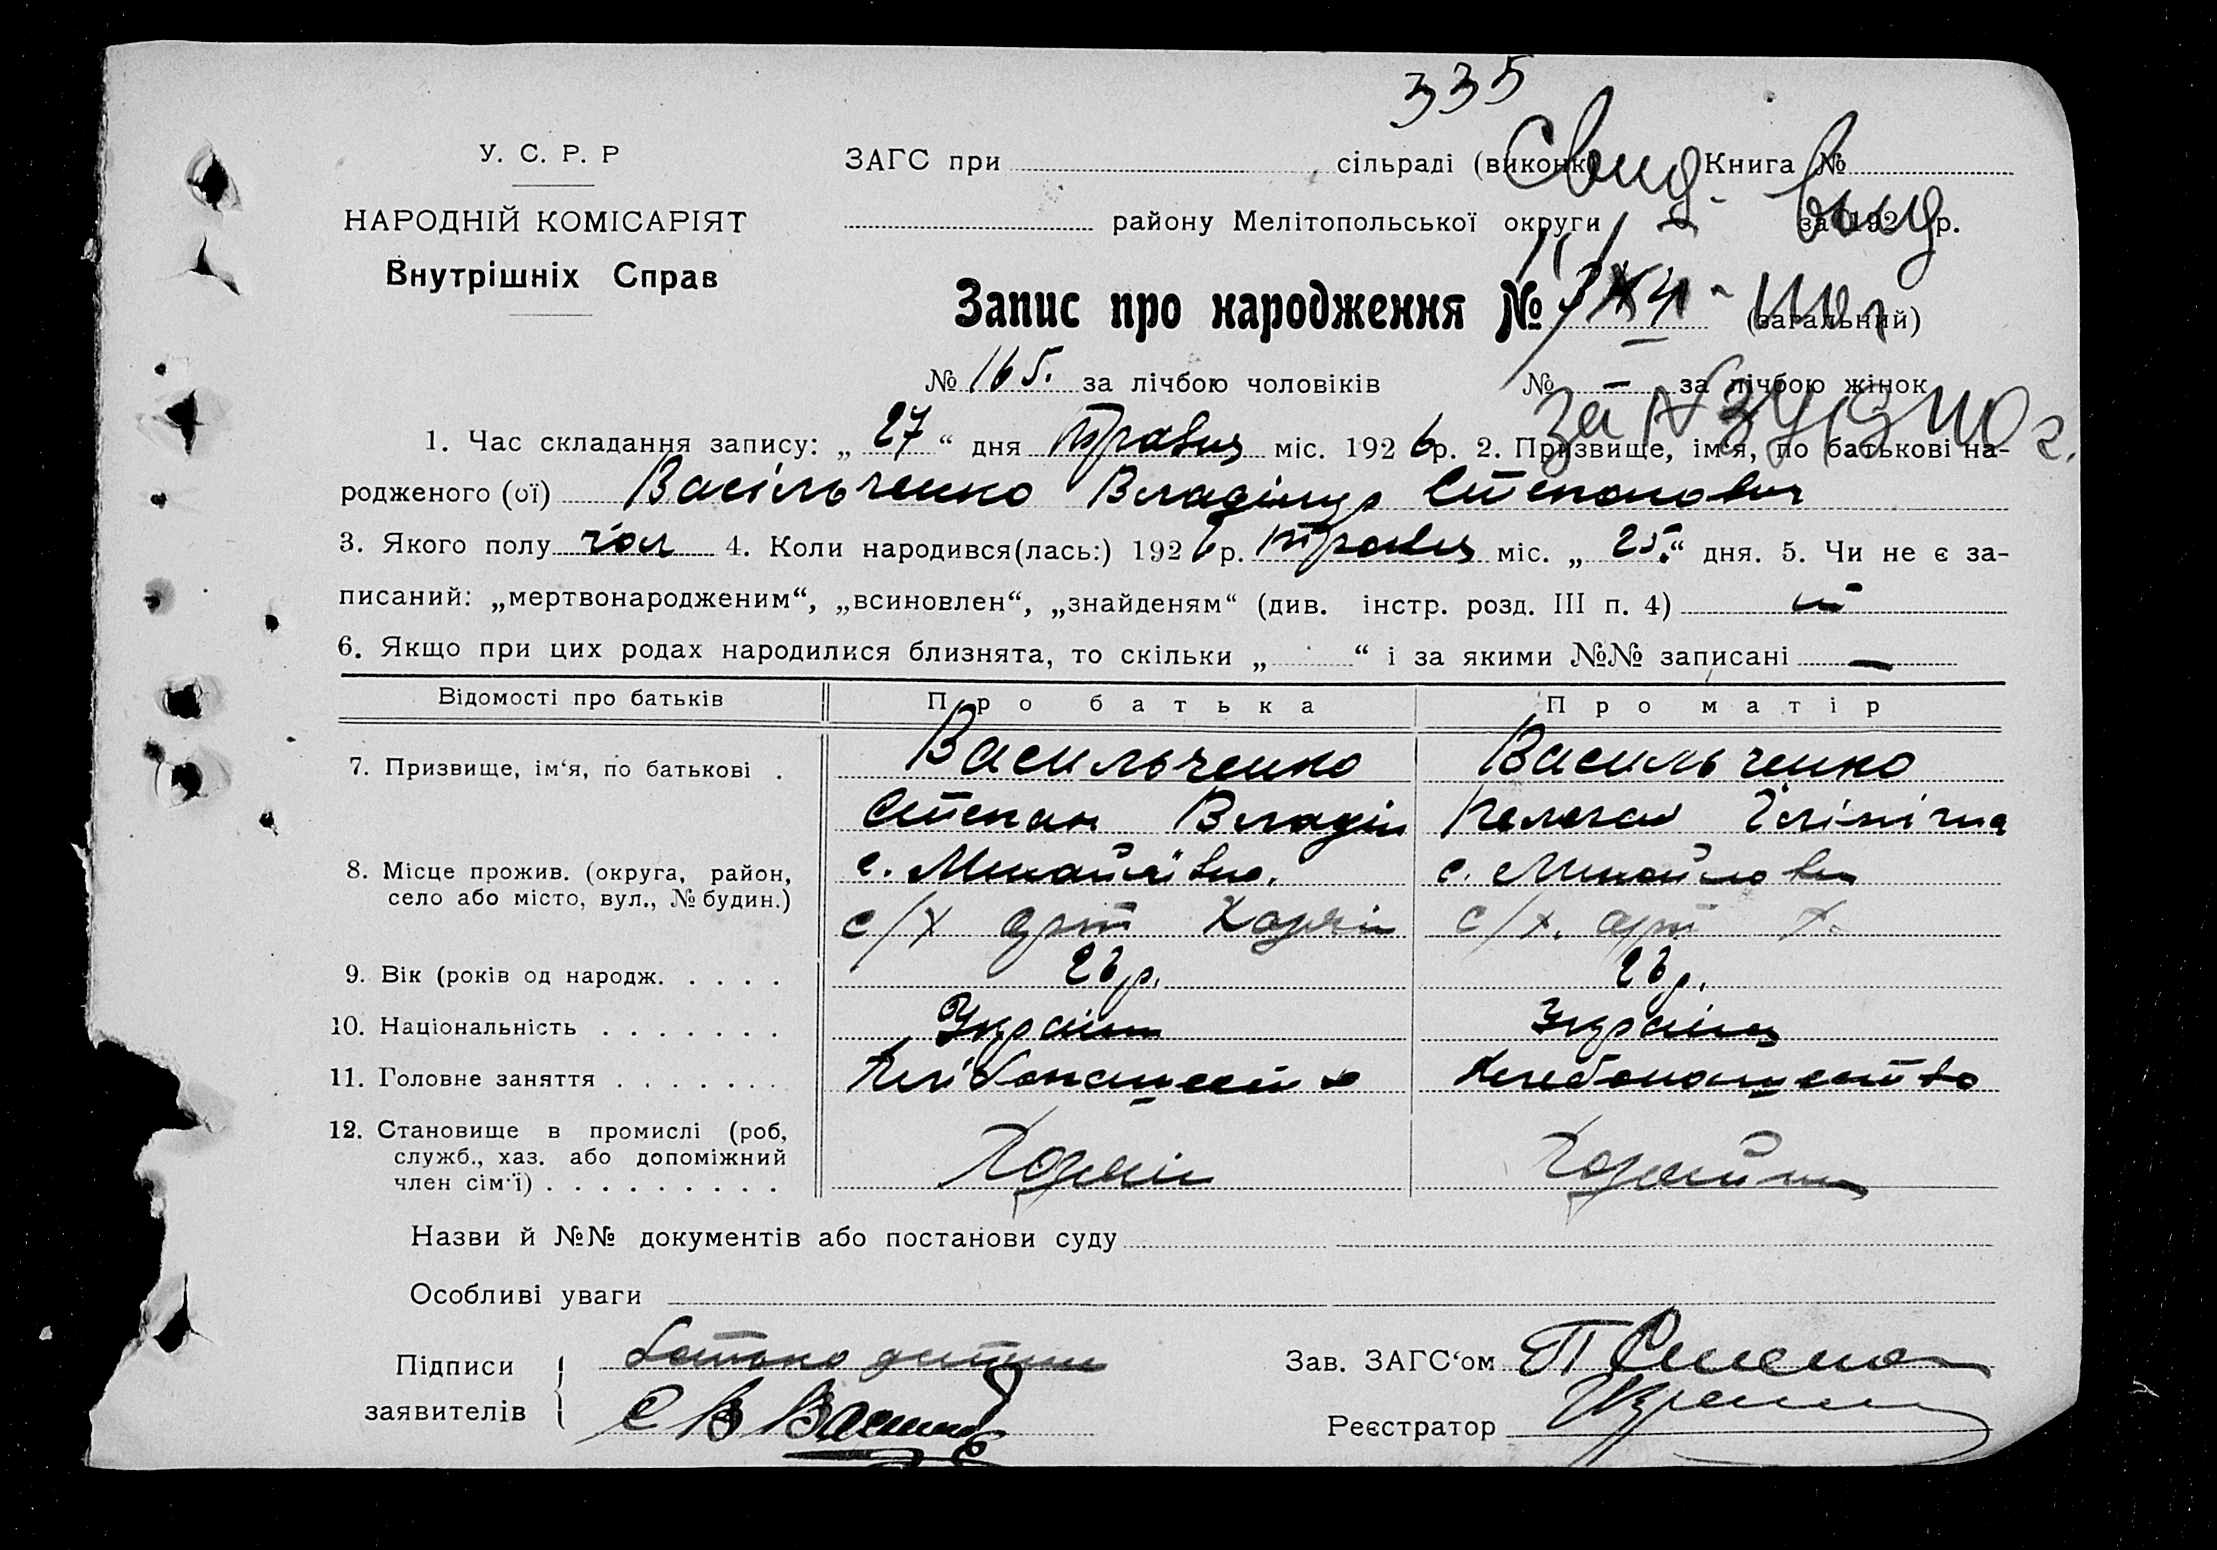 335
У. С. Р. Р
ЗАГС при сільраді (виконк) Книга №
Свид. выд
НАРОДНІЙ КОМІСАРІЯТ
району Мелітопольської округи за 192 р.
Внутрішніх Справ
Запис про народження № (загальний)
№ 165. за лічбою чоловіків № – за лічбою жінок
за №
1. Час складання запису: „27“ дня Травня міс. 1926р. 2. Призвище, ім'я, по батькові на-
родженого (ої) Васільченко Владімір Степанович
3. Якого полу чол 4. Коли народився(лась:) 1926р. Травня міс. „25.“ дня. 5. Чи не є за-
писаний: „мертвонародженим“, „всиновлен“, „знайденям“ (див. інстр. розд. III п. 4)
6. Якщо при цих родах народилися близнята, то скільки „ “ і за якими №№ записані —
Відомості про батьків Про батька Про матір
7. Призвище, ім‘я, по батькові . Васильченко Васильченко
Степан Владім Пелагея
8. Місце прожив. (округа, район, с. Михайлівка. с. Михайловка
село або місто, вул., № будин.)
с/х арт с/х. арт Х.
9. Вік (років од народж. . . . . 26р. 26р.
10. Національність . . . . . . . Україн Україн
11. Головне заняття . . . . . . . Хлібопашество Хлебопашество
12. Становище в промислі (роб,
служб., хаз. або допоміжний
член сім'ї) . . . . . . . . . Хазяін Хазяйка
Назви й №№ документів або постанови суду
Особливі уваги
Підписи батько дитини Зав. ЗАГС‘ом
заявителів С В Васильч Реєстратор